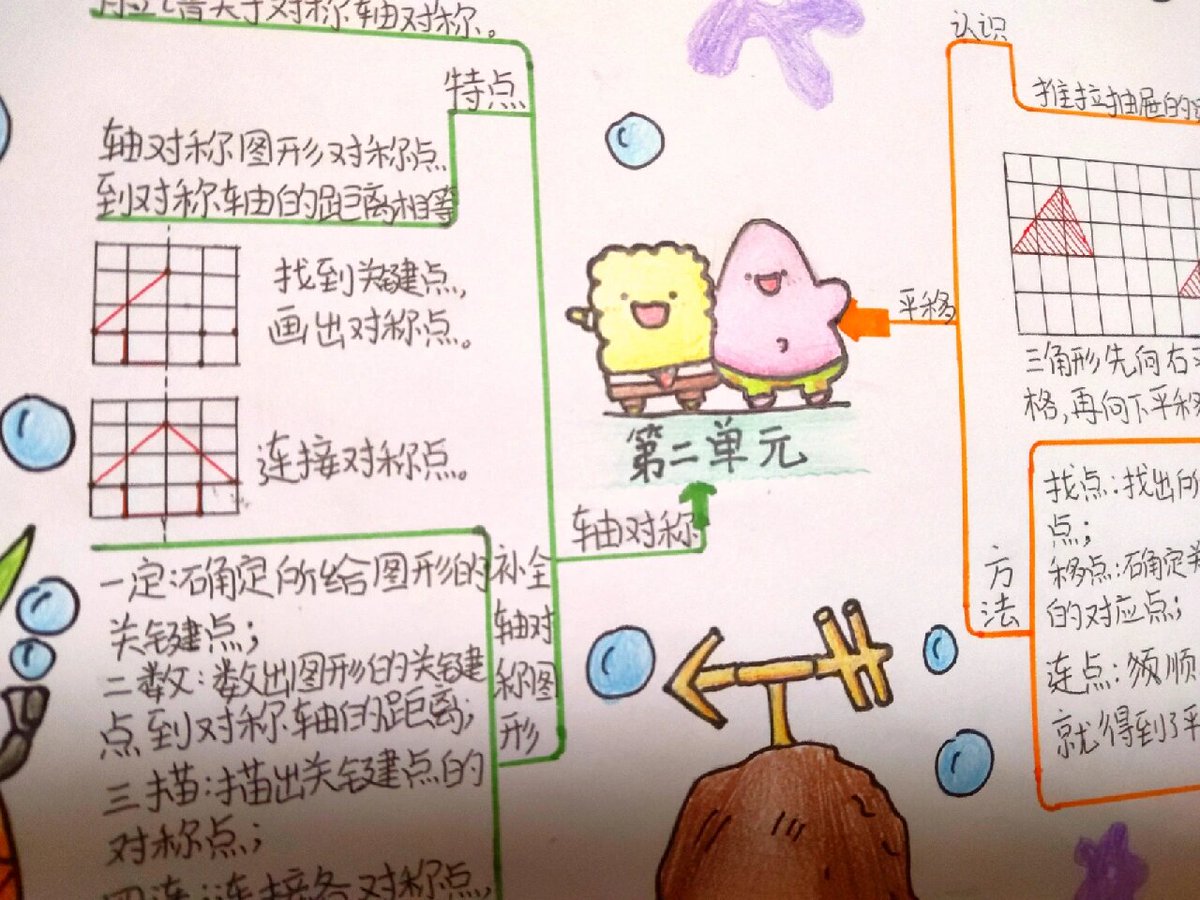 关于对称轴对称。
特点
轴对称图形对称点
到对称轴的距离相等
找到关键点,
画出对称点。
连接对称点。
轴对称
补全
轴对
称图
形
一定:确定所给图形的
关键点;
二数:数出图形的关键
点到对称轴的距离;
三描:描出关键点的
对称点;
四连:连接各对称点,
第二单元
平移
认识
推拉抽屉的
三角形先向右
格,再向下平移
方
法
找点:找出所
点;
移点:确定关
的对应点;
连点:须顺
就得到了平